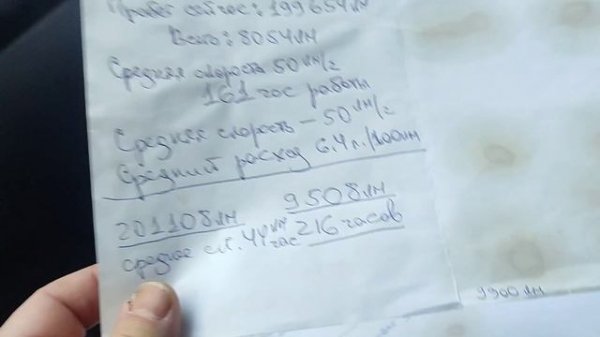 Пробег сейчас: 199654км
Всего: 8054км
Средняя скорость 50 км/г
161 час работы
Средняя скорость - 50 км/г
Средний расход 6.4л./100км
201108км 9508км
среднее ск. 44 км/час 216 часов
9900км